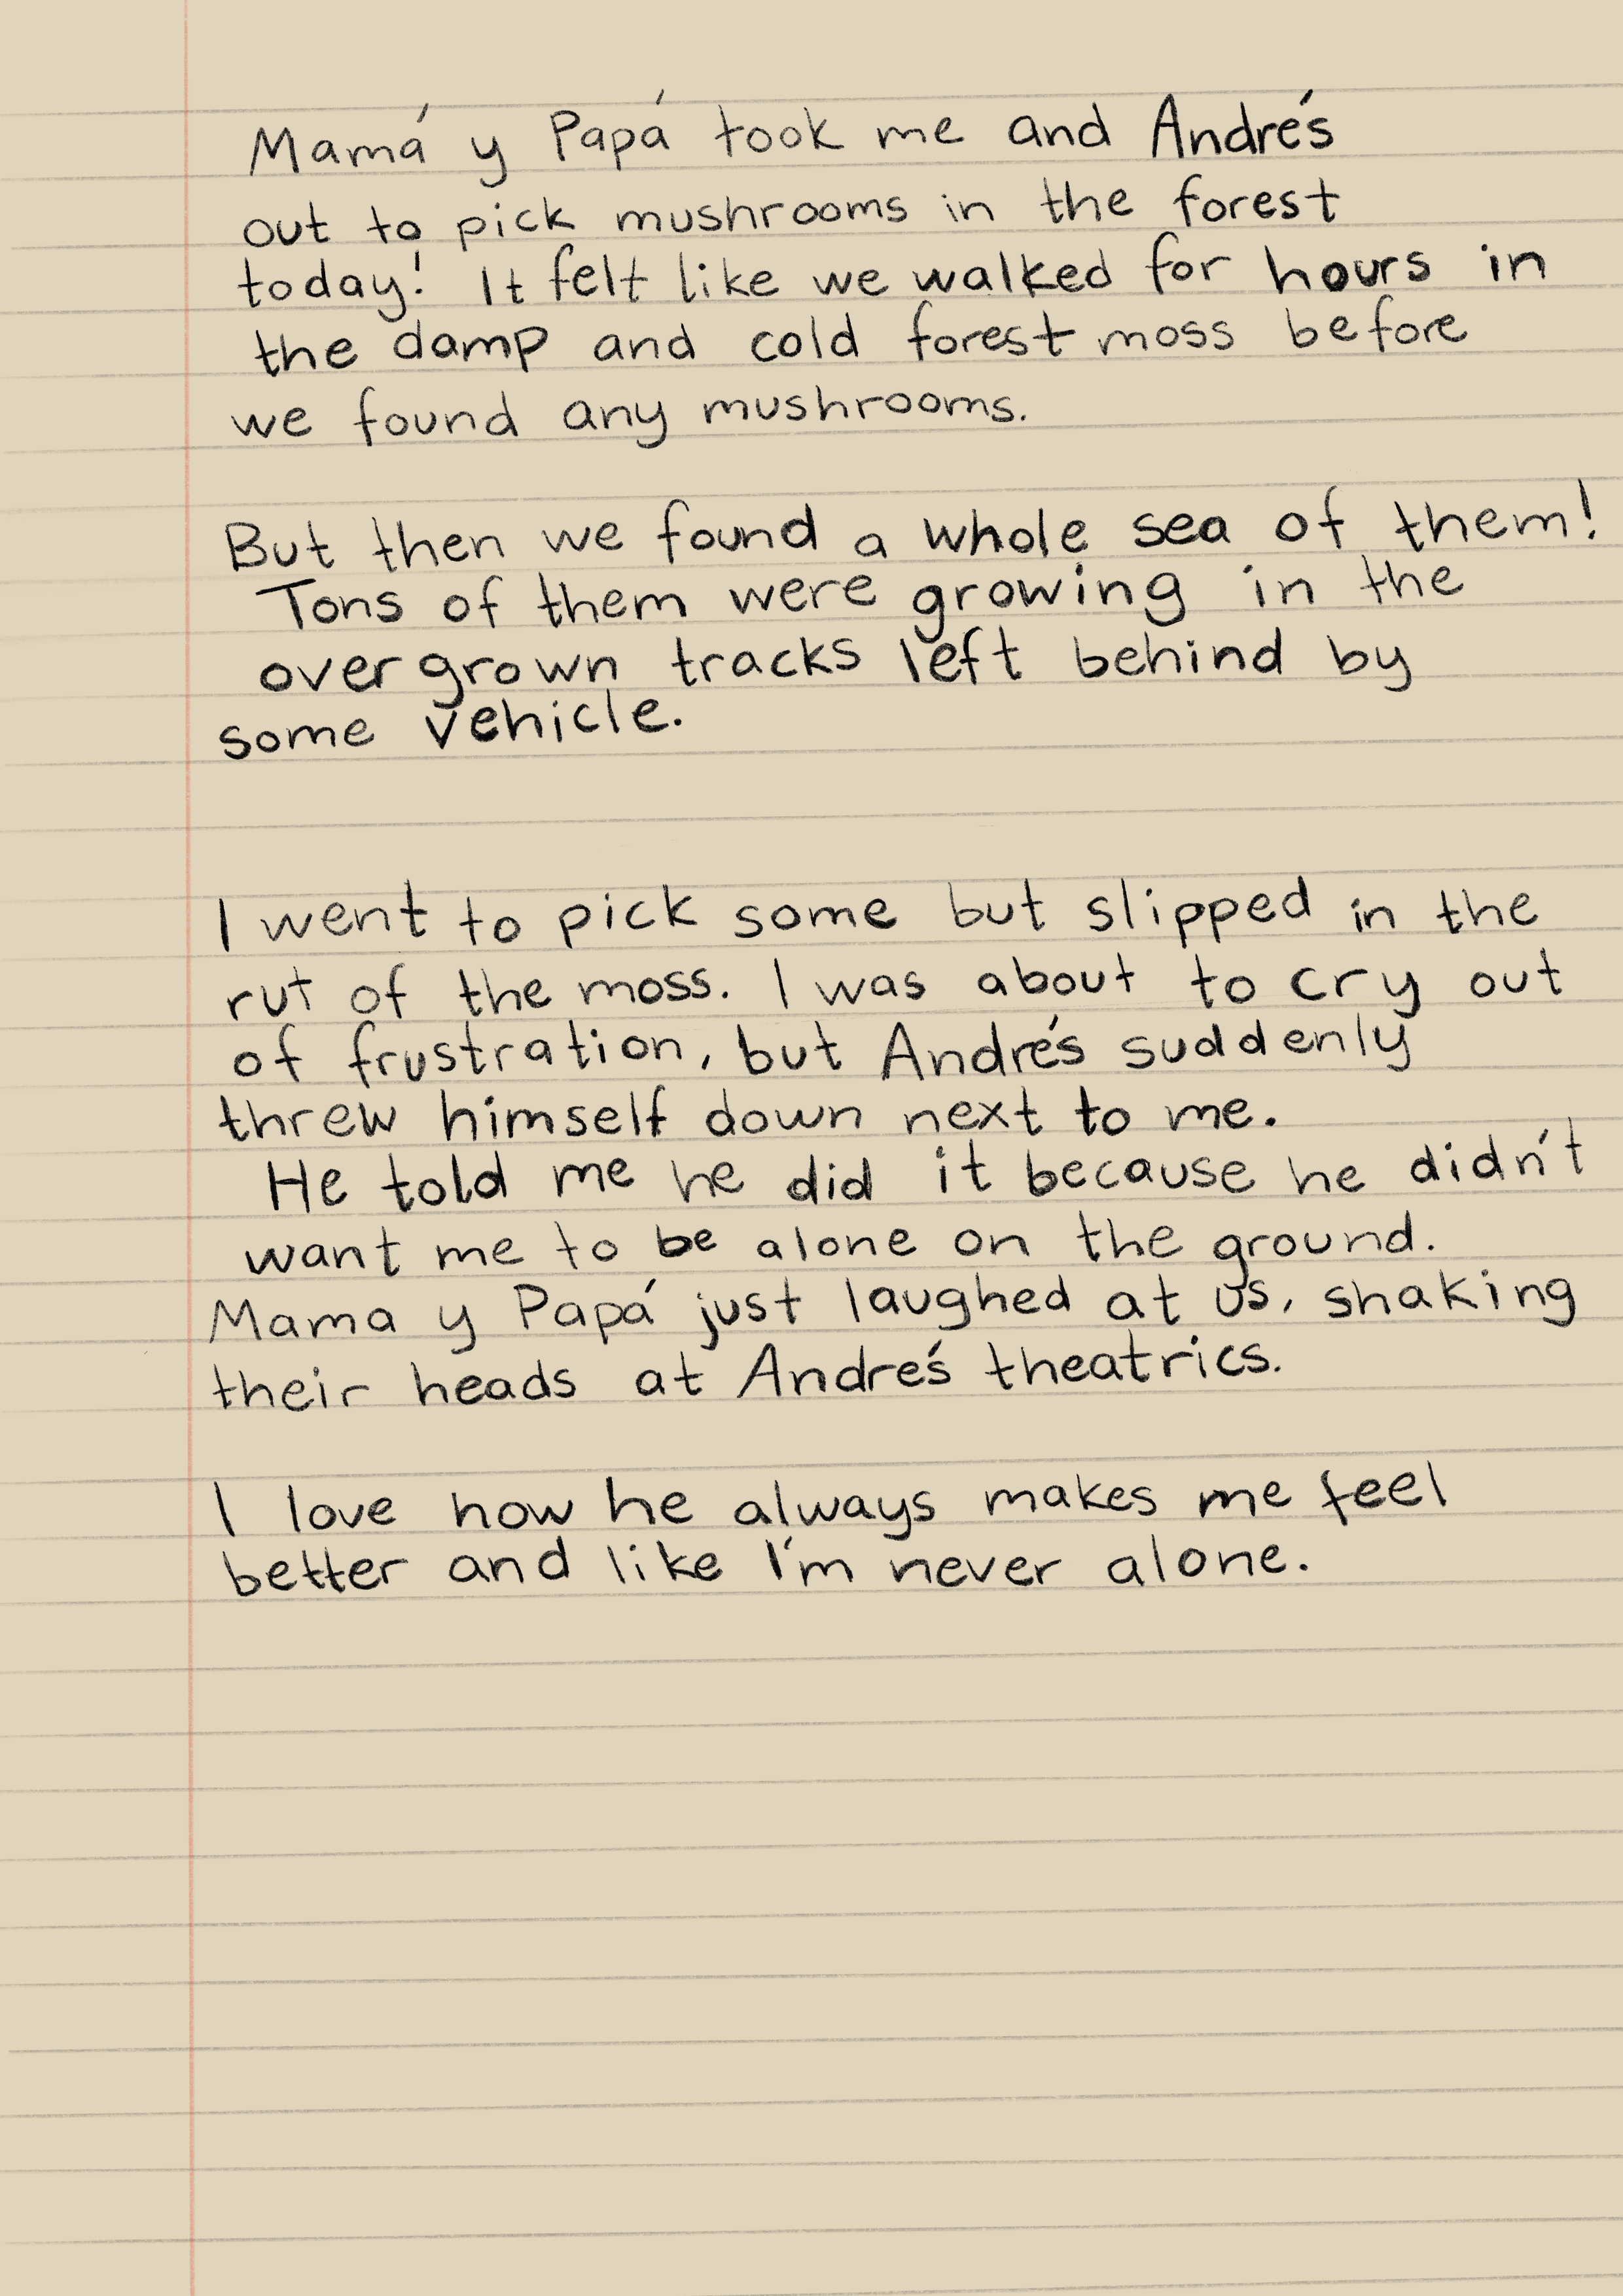 Mamá y Papá took me and Andrés
out to pick mushrooms in the forest
today! It felt like we walked for hours in
the damp and cold forest moss before
we found any mushrooms.
But then we found a whole sea of them!
Tons of them were growing in the
overgrown tracks left behind by
some vehicle.
I went to pick some but slipped in the
rut of the moss. I was about to cry out
of frustration, but Andrés suddenly
threw himself down next to me.
He told me he did it because he didn't
want me to be alone on the ground.
Mama y Papá just laughed at us, shaking
their heads at Andrés theatrics.
I love how he always makes me feel
better and like I'm never alone.